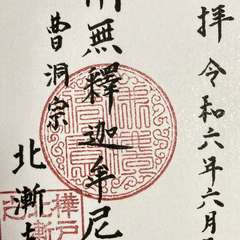 拝
令和六年六月
無釋迦牟尼
曹洞宗
北漸
樺戸
北漸